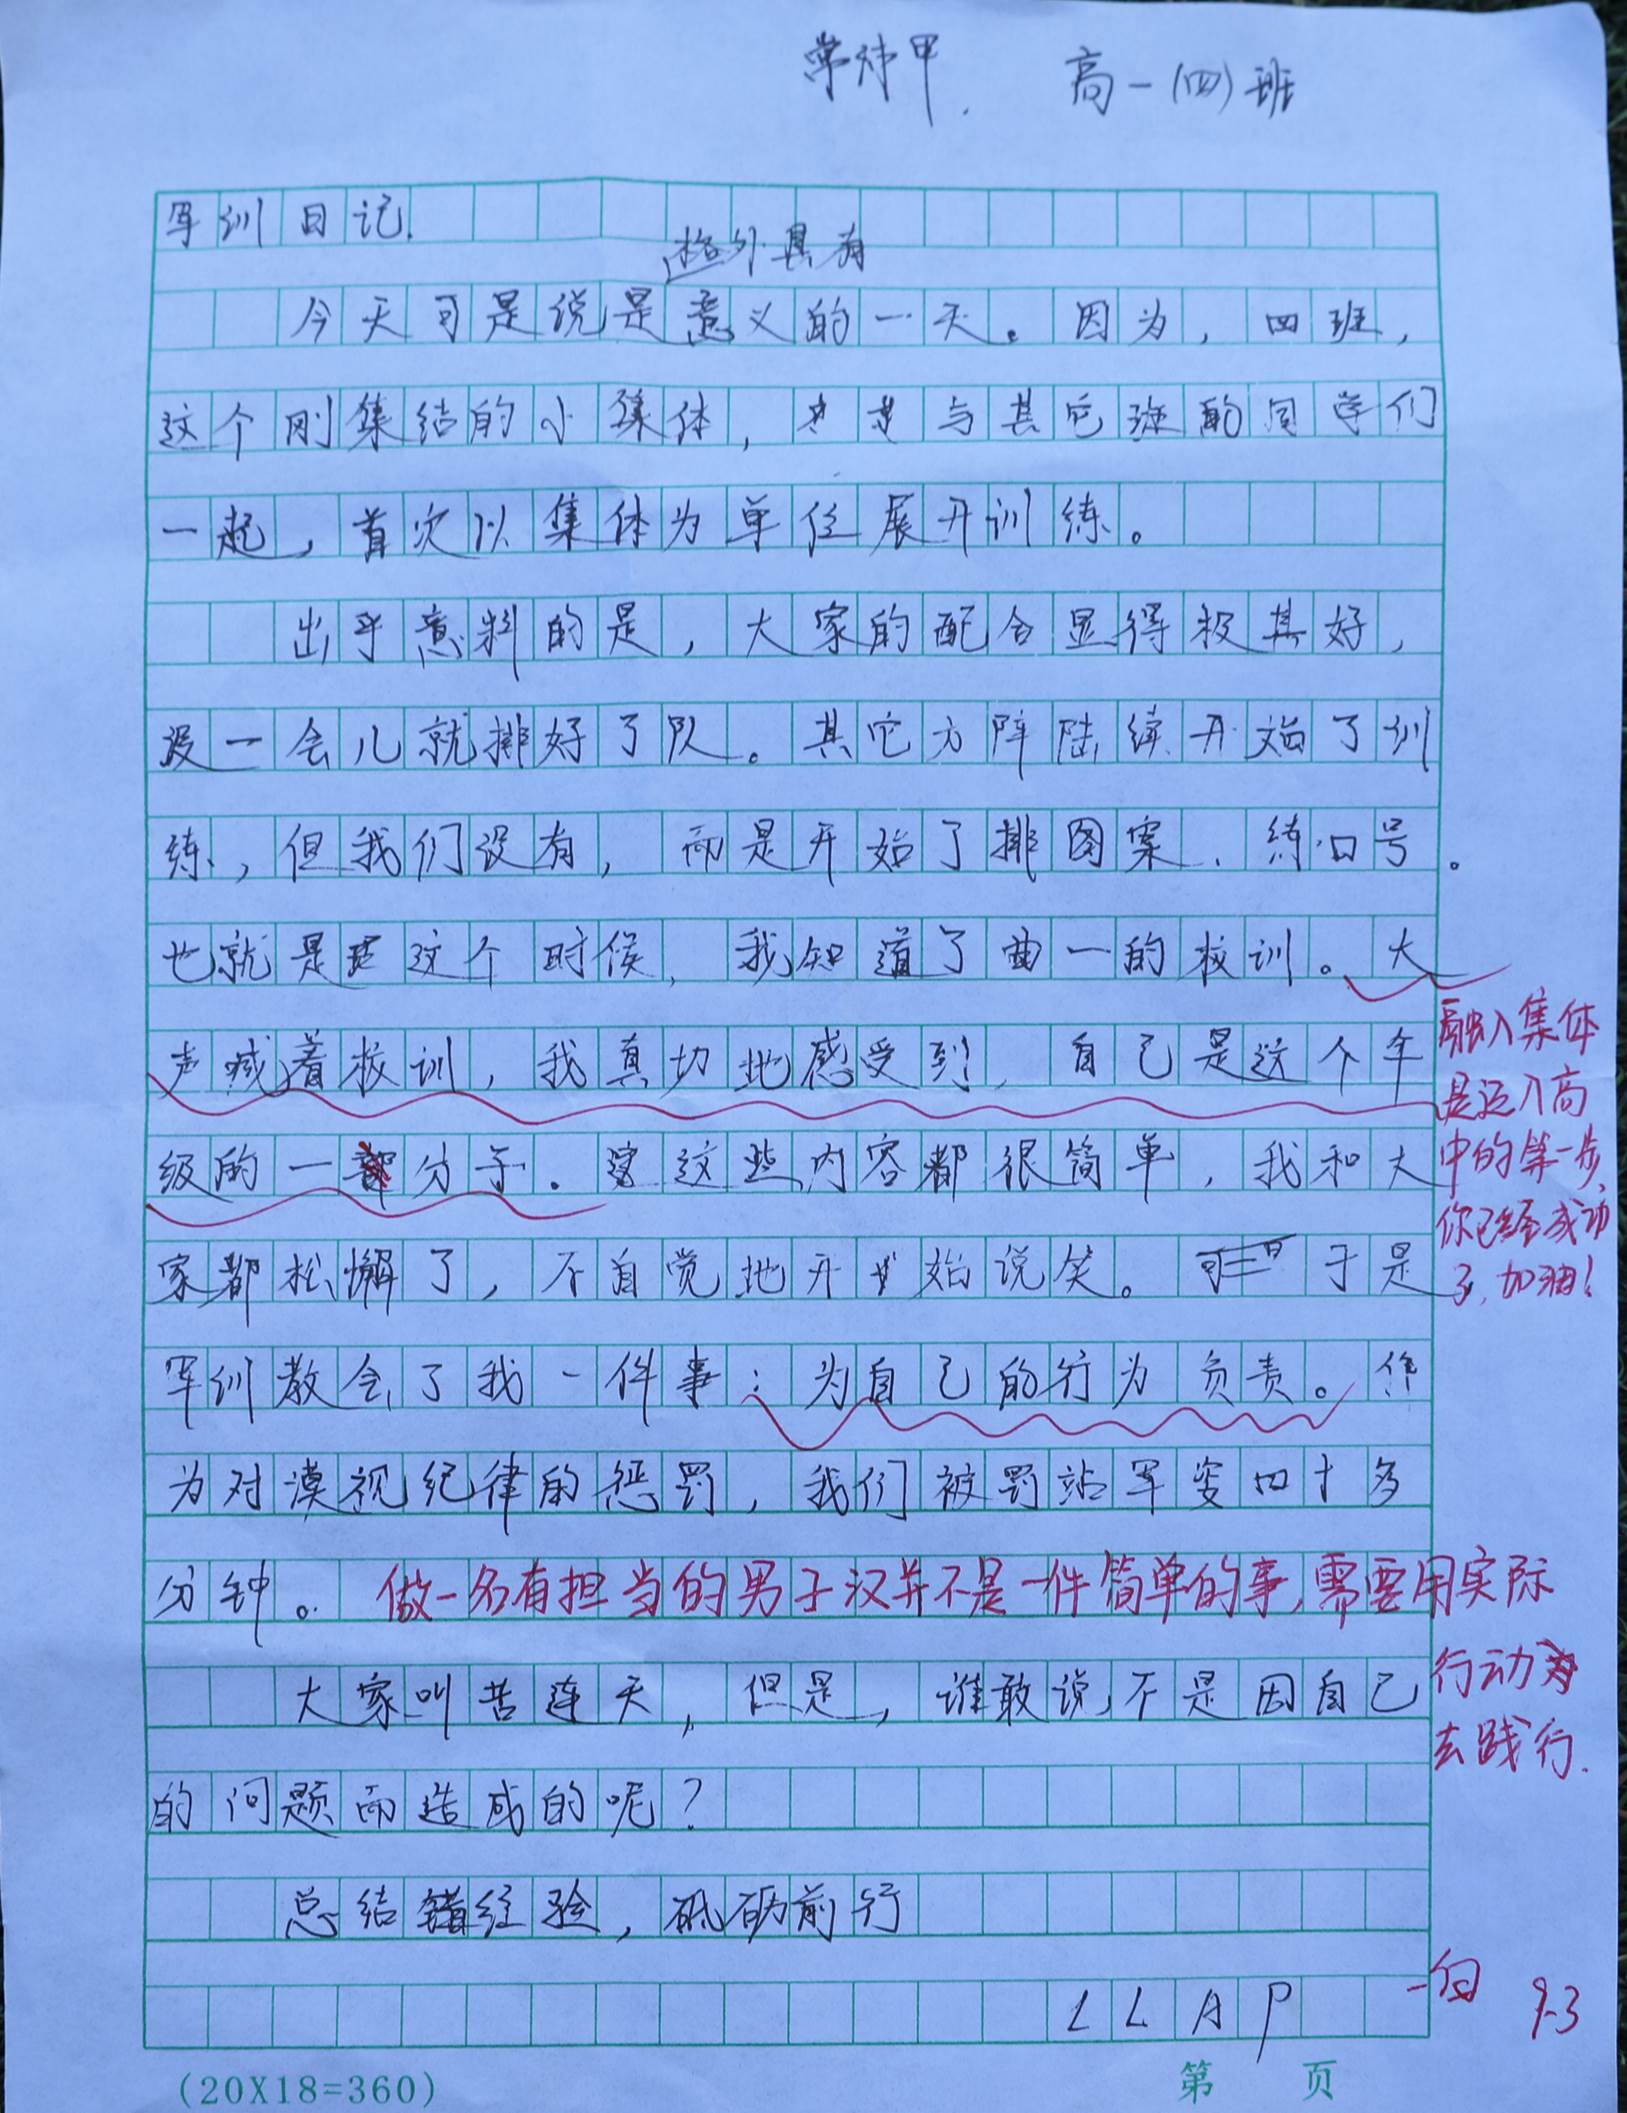 常炜甲 高一(四)班
军训日记.
格外具有
今天可是说是意义的一天。因为,四班,
这个刚集结的小集体,与其它班的同学们
一起,首次以集体为单位展开训练。
出乎意料的是,大家的配合显得极其好,
没一会儿就排好了队。其它方阵陆续开始了训
练,但我们没有,而是开始了排图案、练口号。
也就是这个时候,我知道了曲一的校训。大
声喊着校训,我真切地感受到,自己是这个年
融入集体
是迈入高
级的一分子.这些内容都很简单,我和大
中的第一步,
你已经成功
家都松懈了,不自觉地开始说笑。于是
了,加油!
军训教会了我一件事:为自己的行为负责。作
为对漠视纪律的惩罚,我们被罚站军姿四十多
分钟。
做一名有担当的男子汉并不是一件简单的事,需要用实际
行动
去践行.
大家叫苦连天,但是,谁敢说不是因自己
的问题而造成的呢?
总结经验,砥砺前行
LLAP
9.3
(20X18=360)
第 页